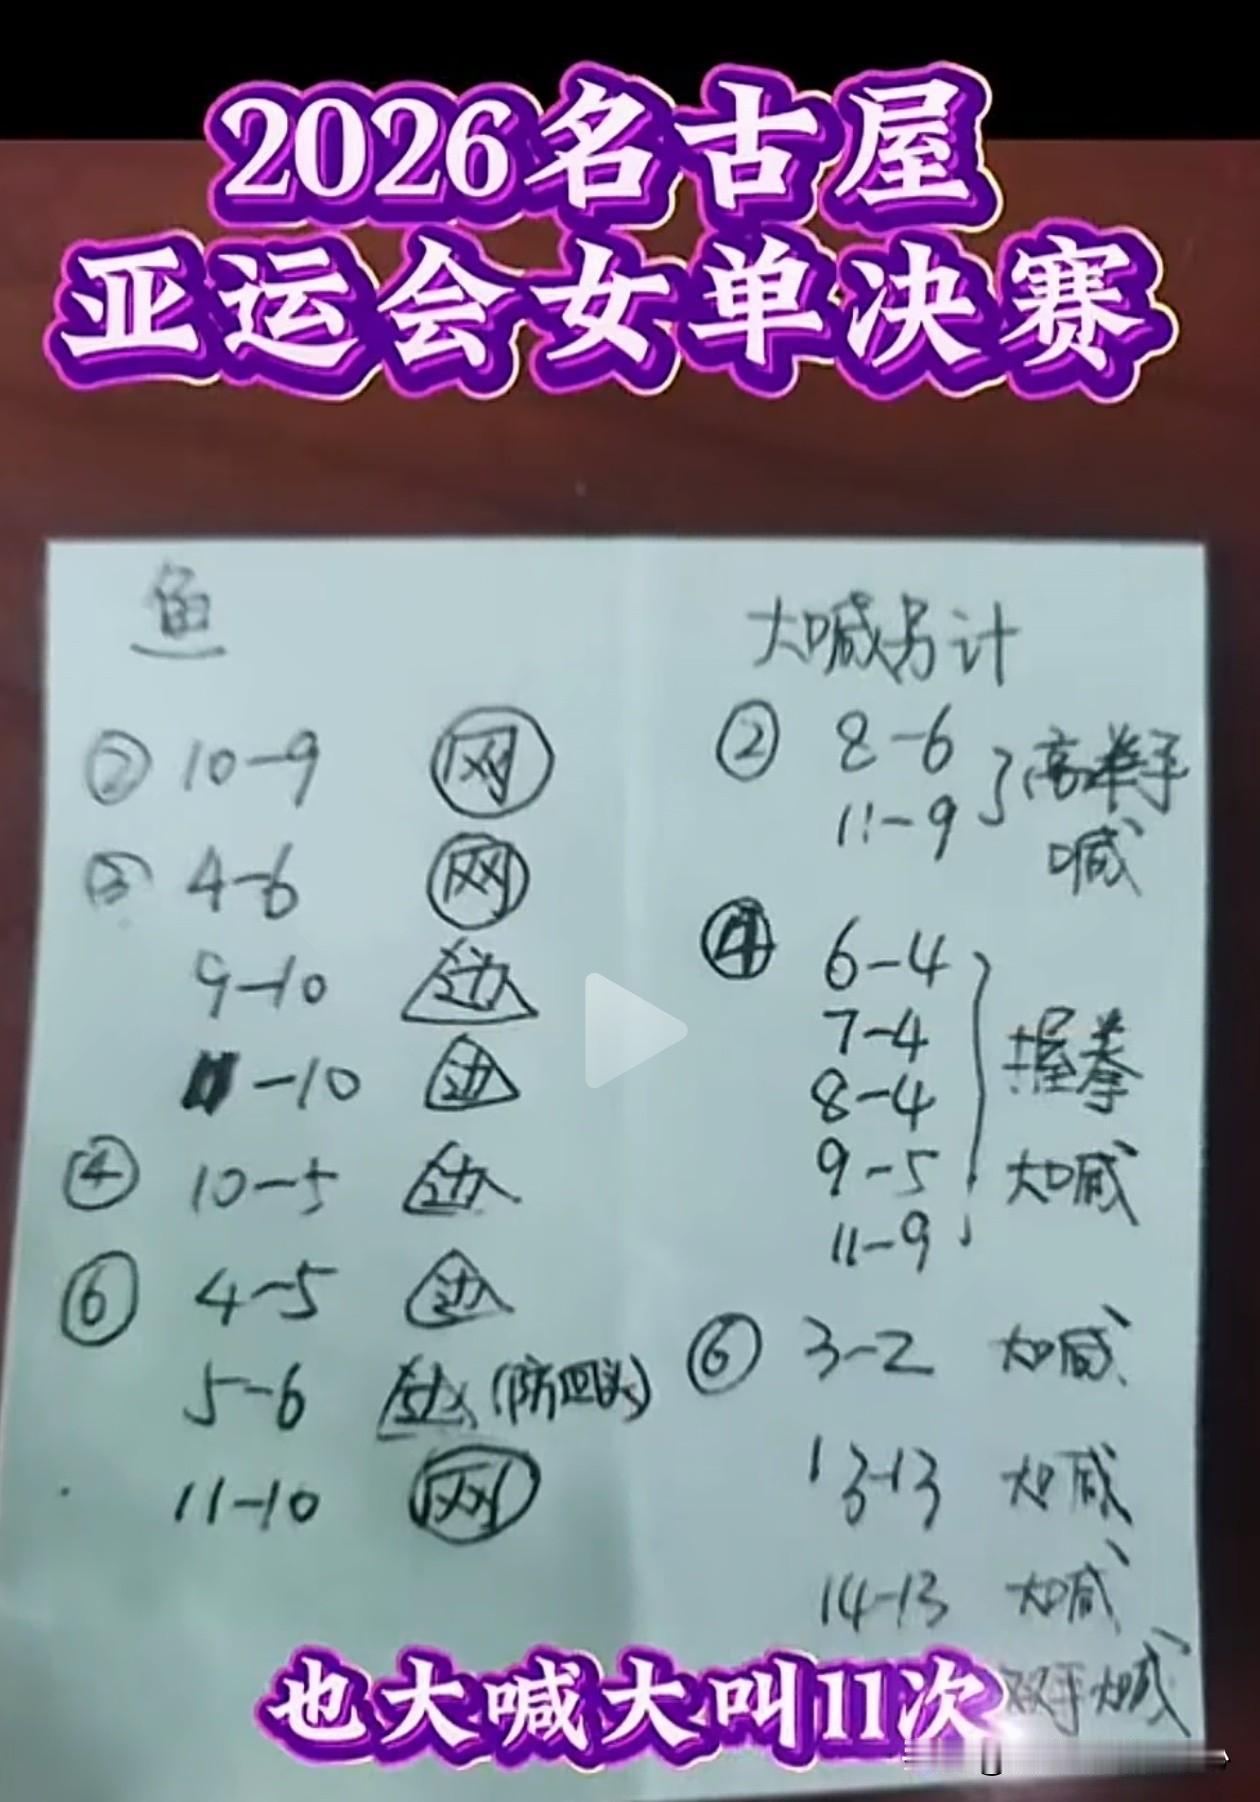 2026名古屋
亚运会女单决赛
鱼
② 10-9 网
③ 4-6 网
9-10 边
-10 边
④ 10-5 边
⑥ 4-5 边
5-6 边(防回头)
11-10 网
大喊另计
② 8-6
11-9
高举手
喊
④ 6-4
7-4
8-4
9-5
11-9
握拳
大喊
⑥ 3-2 大喊
13-13 大喊
14-13 大喊
双手大喊
也大喊大叫11次